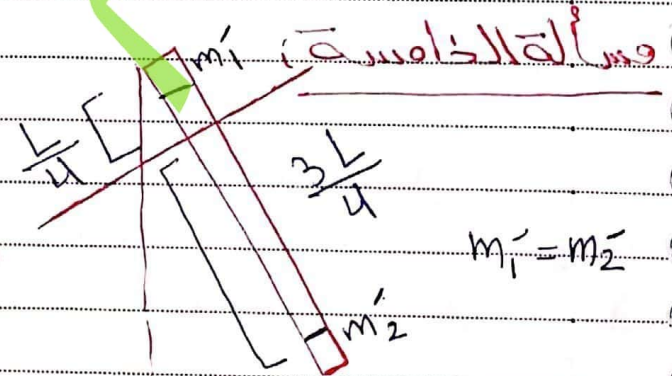 مسألة الخامسة:
m₁′
L/4
3L/4
m₁′ = m₂′
m₂′